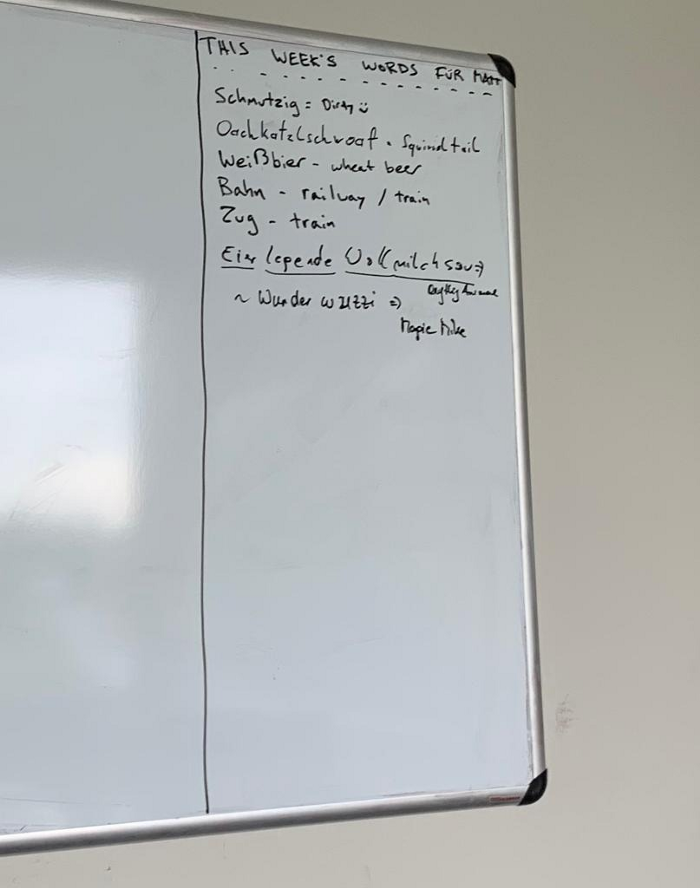 THIS WEEK'S WORDS FÜR MATT
Schmutzig = Dirty
Oachkatzlschwoaf - Squirrel tail
Weißbier - wheat beer
Bahn - railway / train
Zug - train
Eier legende Wollmilchsau =>
~ Wunder wuzzi =>
Magic Mike